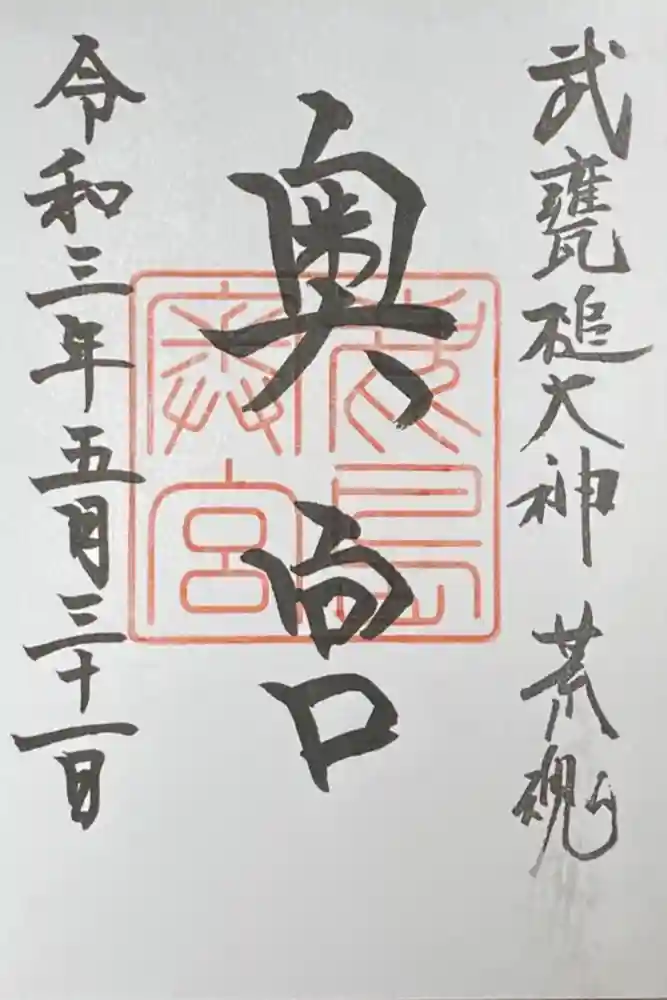 武甕槌大神 荒魂
奥宮
鹿島奥宮
令和三年五月三十一日